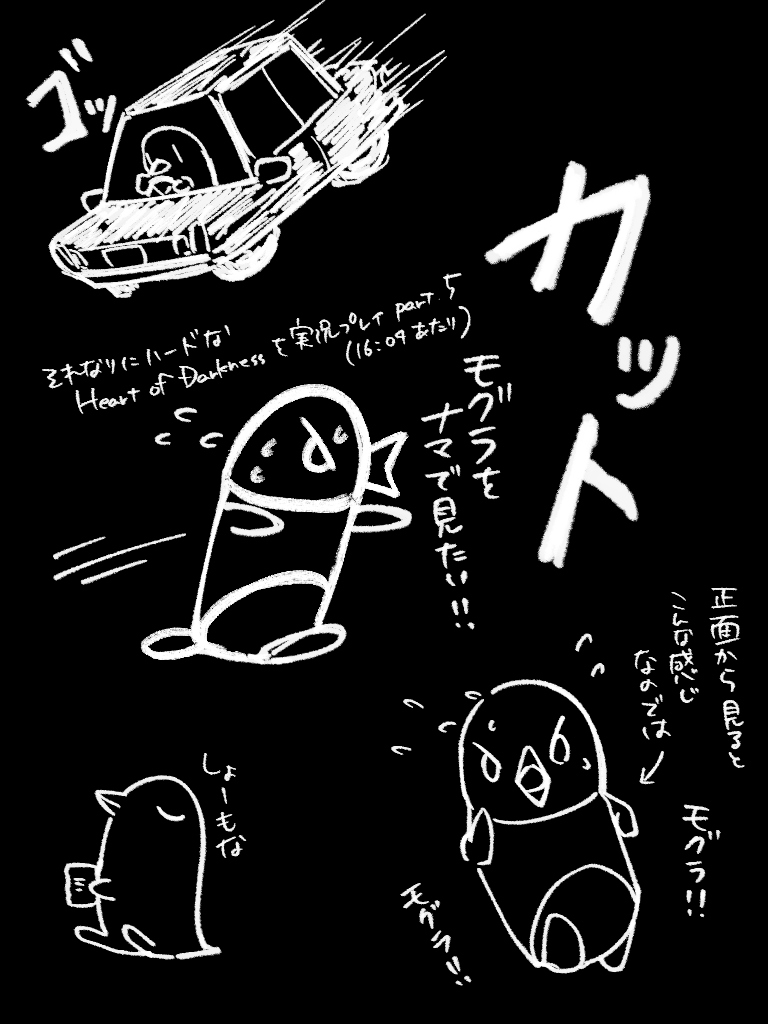 ゴッ
カット
それなりにハードな
Heart of Darkness を実況プレイ part.5
(16:09 あたり)
モグラを
ナマで見たい!!
正面から見ると
こんな感じ
なのでは
モグラ!!
モグラ!!
しょーもな